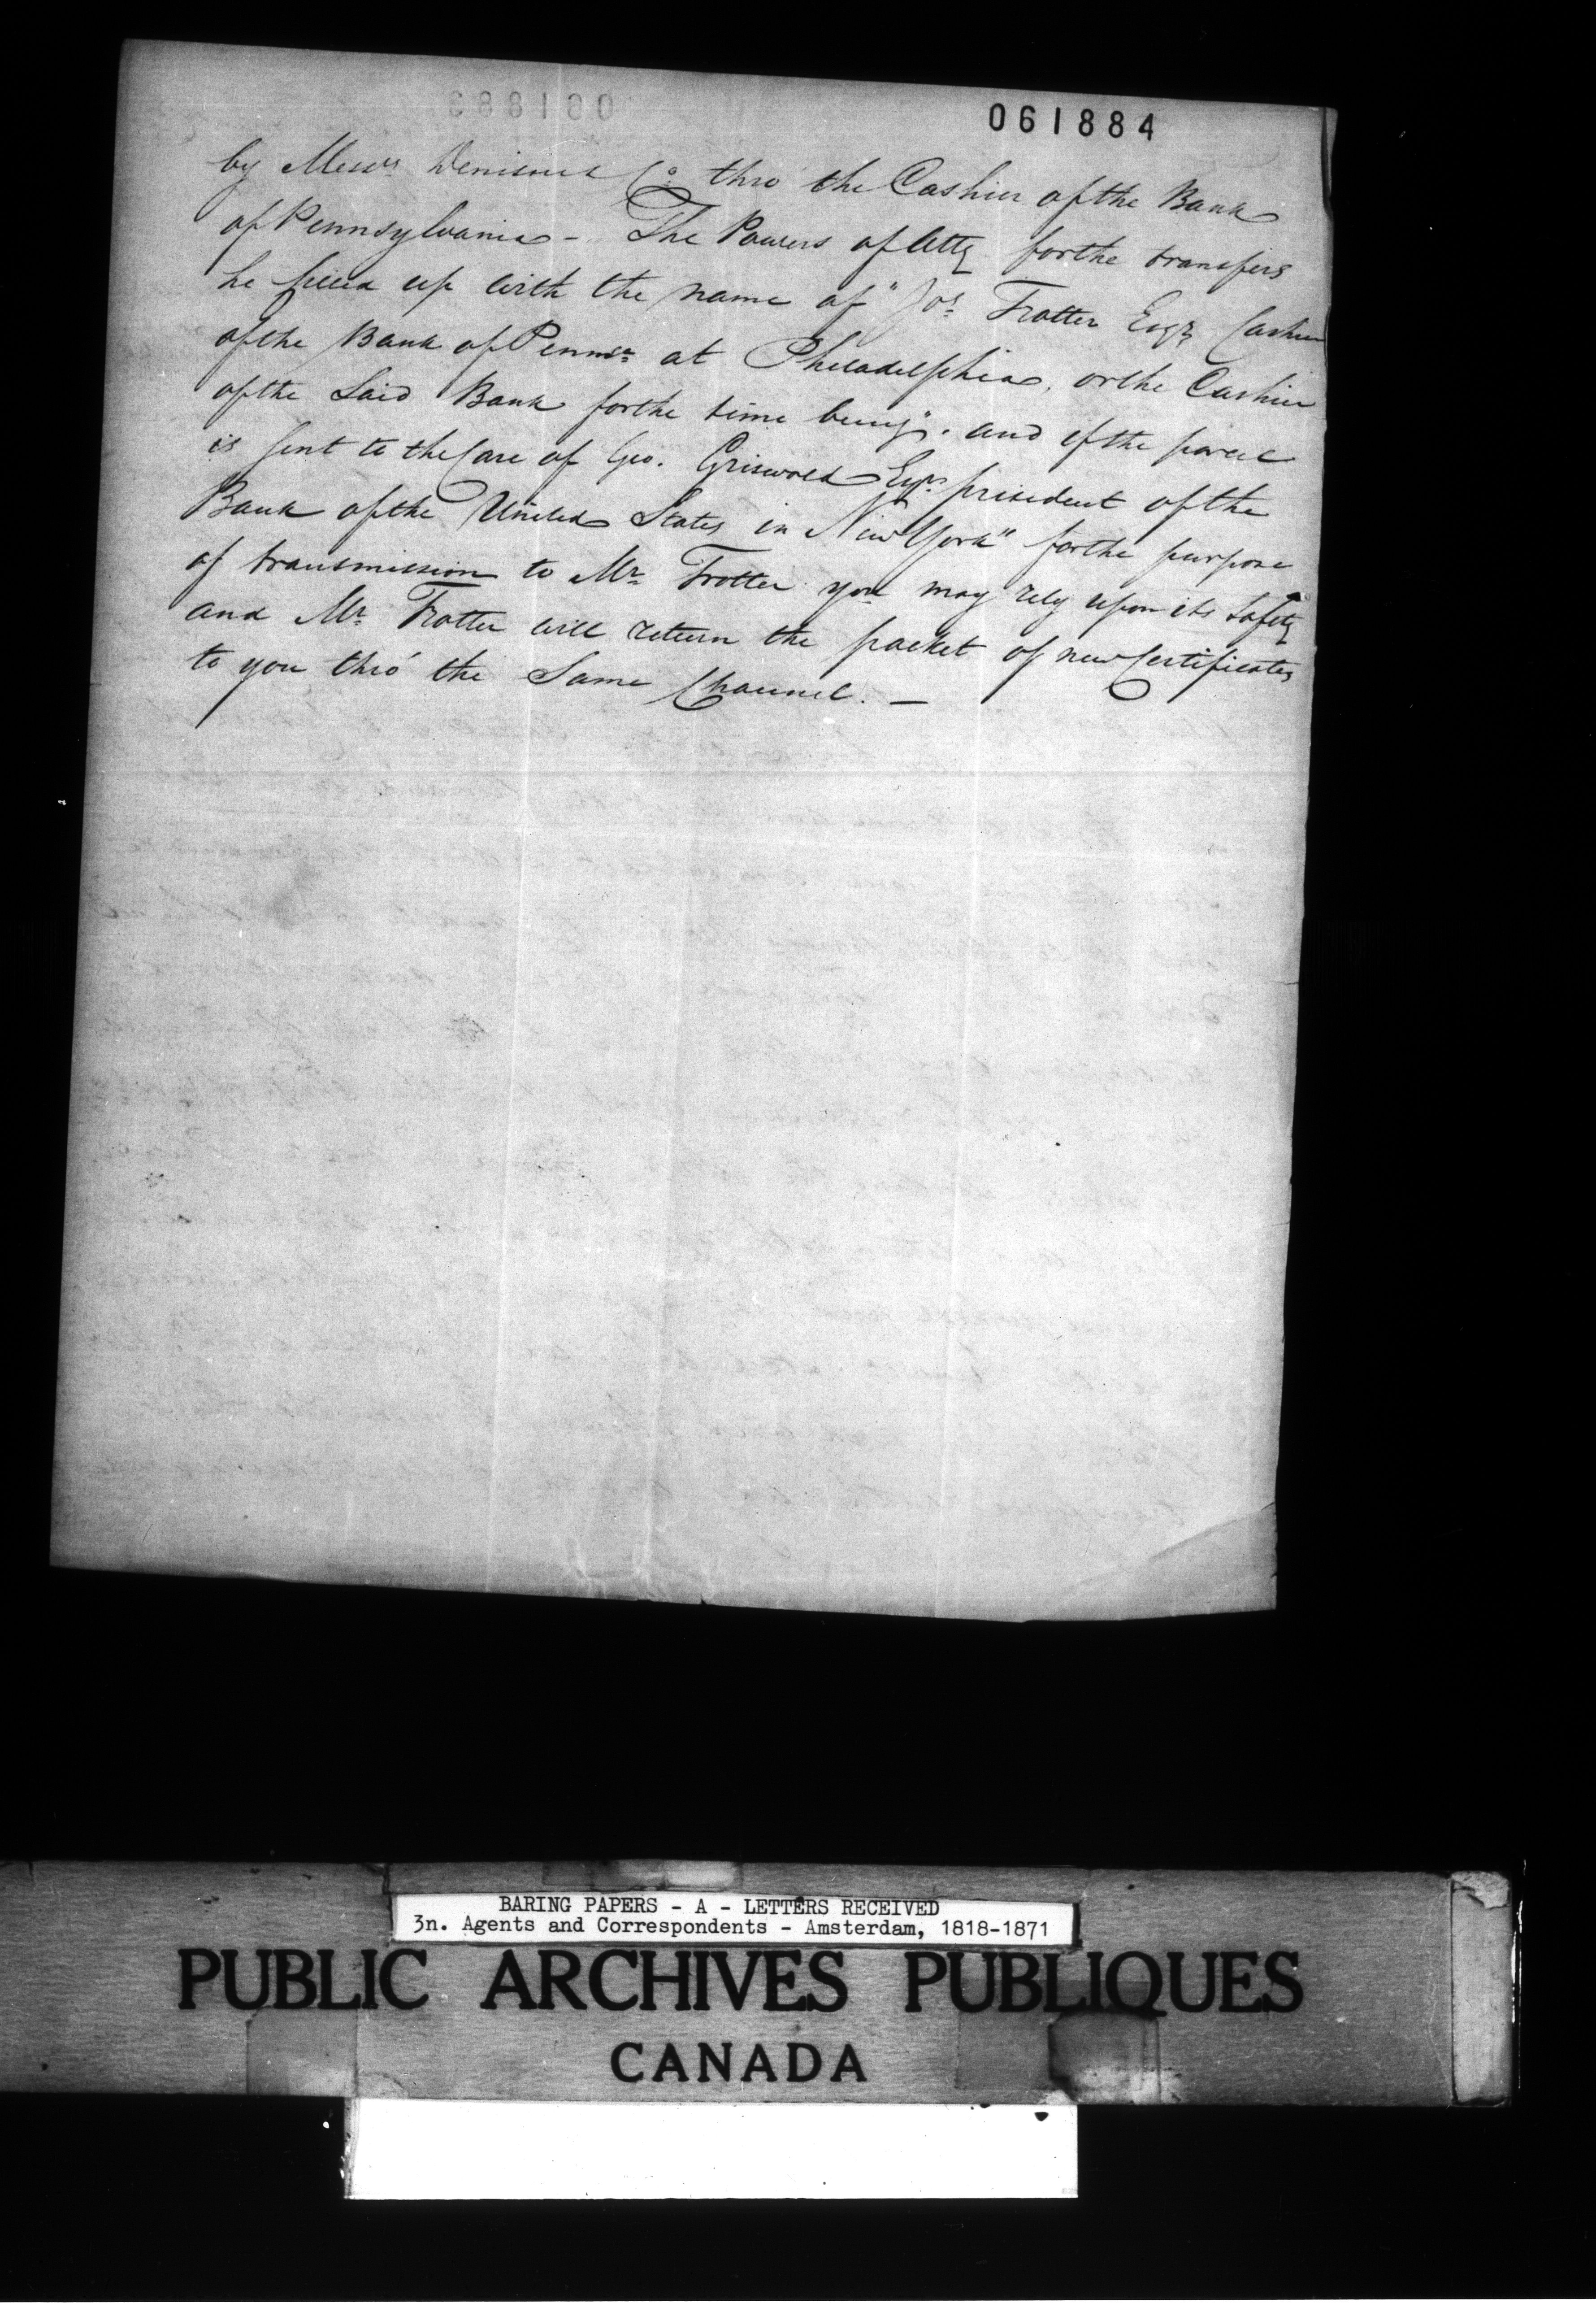 061884
by Messrs Denison & Co thro' the Cashier of the Bank
of Pennsylvania - The Powers of Atty for the transfers
be filled up with the name of "Jos. Trotter Esqr Cashier
of the Bank of Pennsa at Philadelphia, or the Cashier
of the Said Bank for the time being". and if the parcel
is sent to the Care of Geo. Griswold Esqr president of the
Bank of the United States in New York" for the purpose
of transmission to Mr Trotter you may rely upon its safety
and Mr Trotter will return the packet of new Certificates
to you thro' the Same Channel. —
BARING PAPERS - A - LETTERS RECEIVED
3n. Agents and Correspondents - Amsterdam, 1818-1871
PUBLIC ARCHIVES PUBLIQUES
CANADA